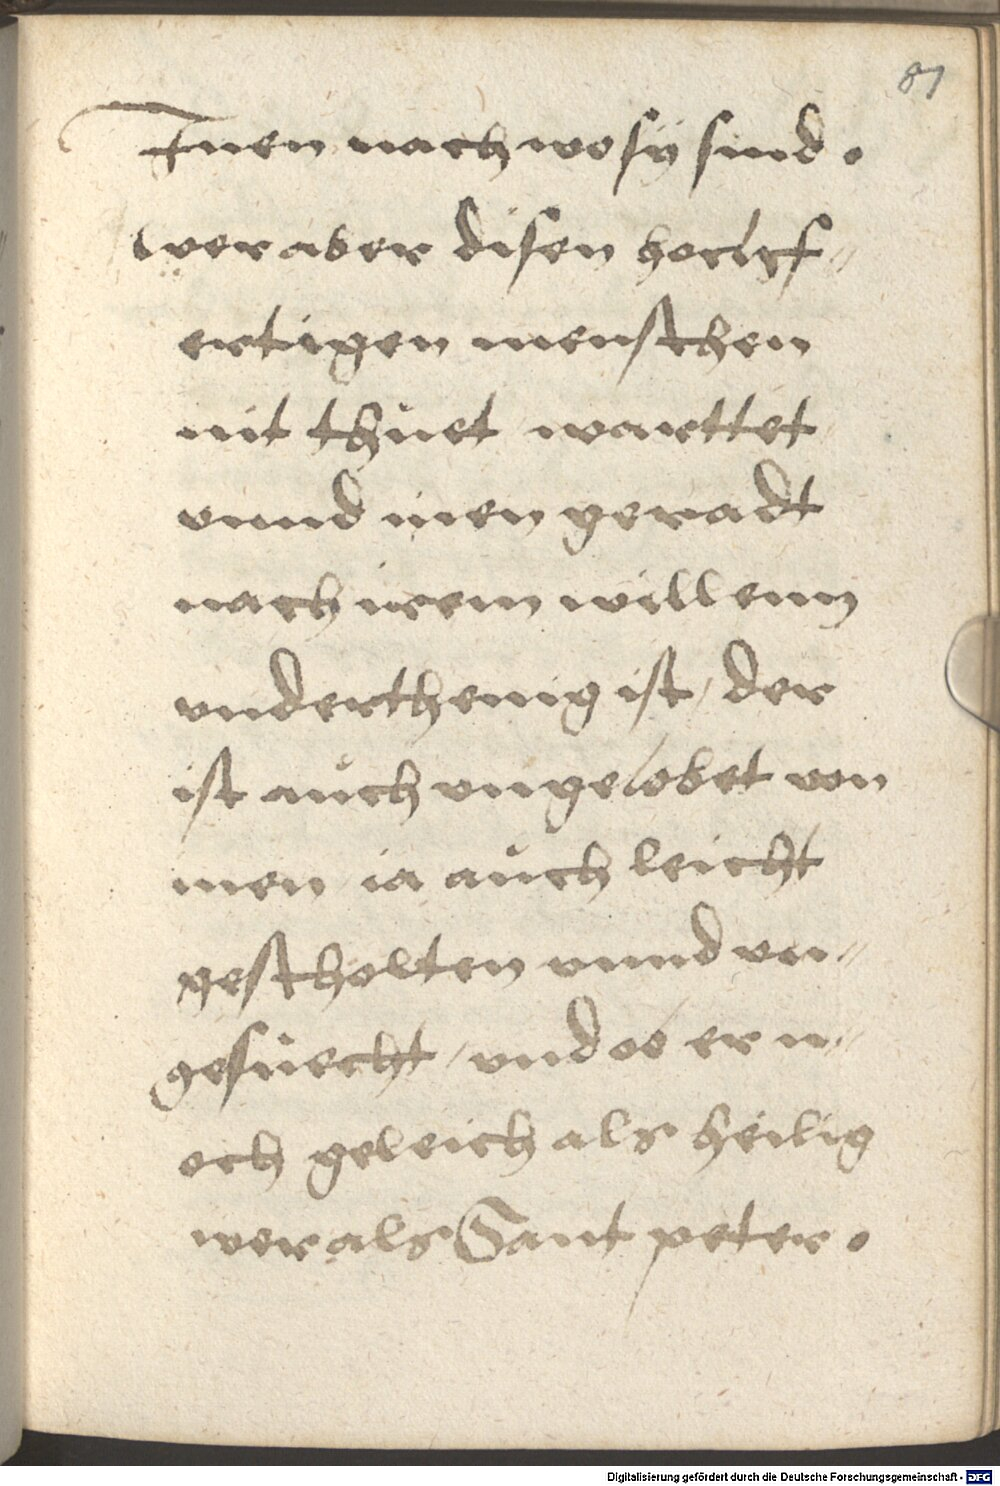 81
Inen nach wo sy sind .
wer aber disen hochf-
ertigen menschen
nit thuet warttet
vnnd inen geradt
nach irem willenn
vnderthenig ist / der
ist auch vngelobet von
inen / ia auch leicht
gescholten vnnd vn-
gesuecht / vnd ob er n-
och geleich als heilig
wer als Sant peter .
Digitalisierung gefördert durch die Deutsche Forschungsgemeinschaft - DFG